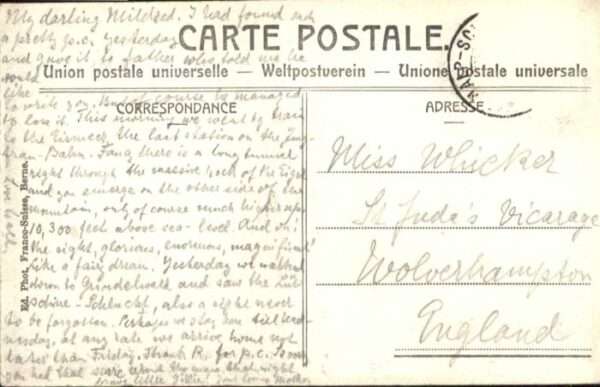 My darling Mildred. I had found such
a pretty p.c. yesterday
and gave it to father who told me he
would
like
to write you. But of course he managed
to lose it. This morning we went by train
to the Eismeer, the last station on the Jung-
frau-Bahn. Fancy there is a long tunnel
right through the massive rock of the Eiger
and you emerge on the other side of the
mountain, only of course much higher up
10,300 feet above sea-level. And oh!
the sight, glorious, enormous, magnificent
like a fairy dream. Yesterday we walked
down to Grindelwald and saw the Lüt-
schine-Schlucht, also a sight never
to be forgotten. Perhaps we stay here till Wed-
nesday, at any rate we arrive home not
later than Friday. Thank R. for p.c. So sorry
you had that scare
brave little Millie! Your loving Mother
CARTE POSTALE.
Union postale universelle — Weltpostverein — Unione postale universale
CORRESPONDANCE
ADRESSE
Miss Whicker
St Jude's Vicarage
Wolverhampton
England
Ed. Phot. Franco-Suisse, Berne.